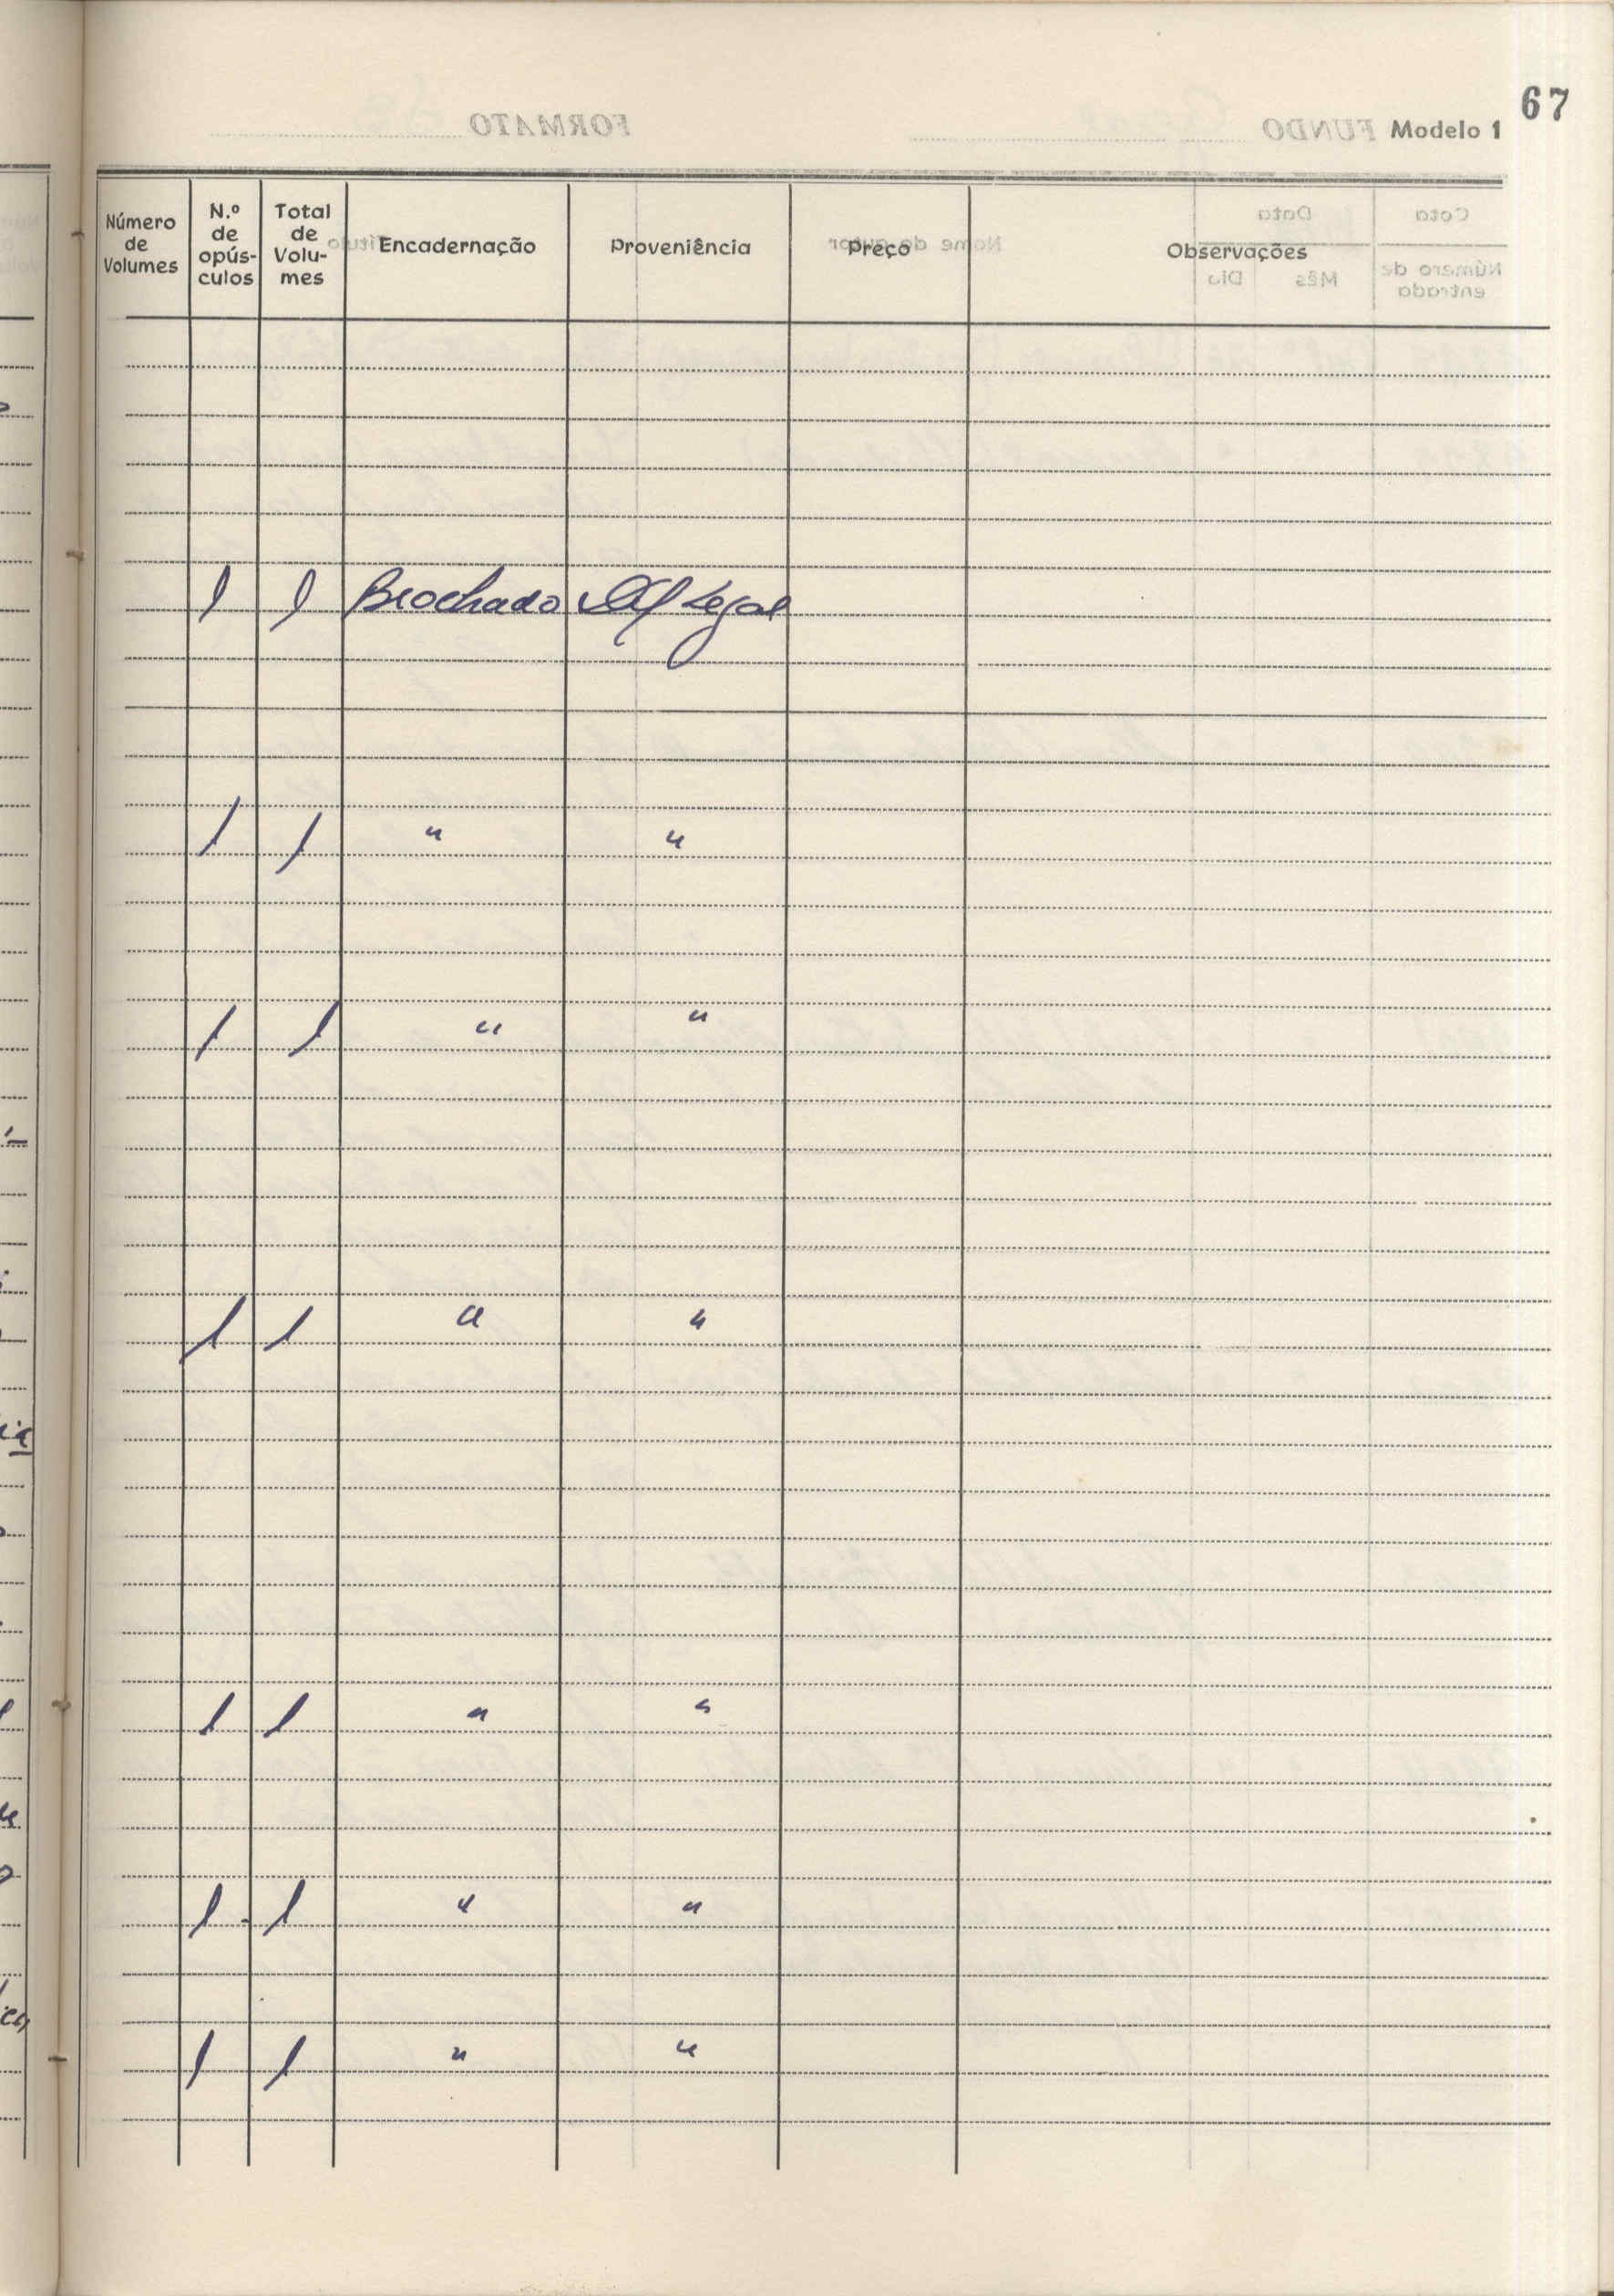 67
Modelo 1
Número de Volumes | N.º de opús-culos | Total de Volu-mes | Encadernação | Proveniência | Preço | Observações
1 | 1 | Brochado | Legal
1 | 1 | " | "
1 | 1 | " | "
1 | 1 | " | "
1 | 1 | " | "
1 | 1 | " | "
1 | 1 | " | "